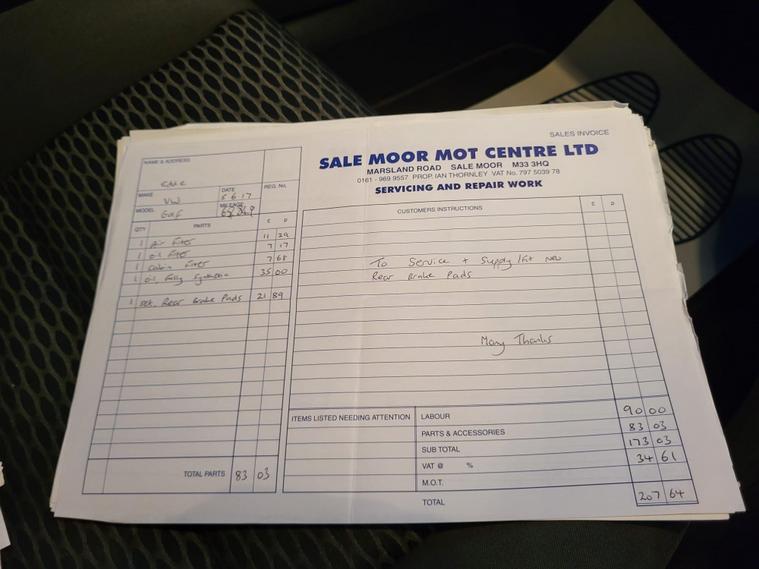 SALES INVOICE
SALE MOOR MOT CENTRE LTD
MARSLAND ROAD SALE MOOR M33 3HQ
0161 - 969 9557 PROP. IAN THORNLEY VAT No. 797 5039 78
SERVICING AND REPAIR WORK
NAME & ADDRESS
MAKE VW DATE 5.6.17 REG. No.
MODEL Golf MILEAGE
QTY PARTS £ P
1 Air Filter 11 29
1 Oil Filter 7 17
1 Cabin Filter 7 68
1 oil, Fully Synthetic 35 00
1 set Rear Brake Pads 21 89
TOTAL PARTS 83 03
CUSTOMERS INSTRUCTIONS £ P
To Service + Supply / Fit new
Rear Brake Pads
Many Thanks
ITEMS LISTED NEEDING ATTENTION
LABOUR 90 00
PARTS & ACCESSORIES 83 03
SUB TOTAL 173 03
VAT @ % 34 61
M.O.T.
TOTAL 207 64